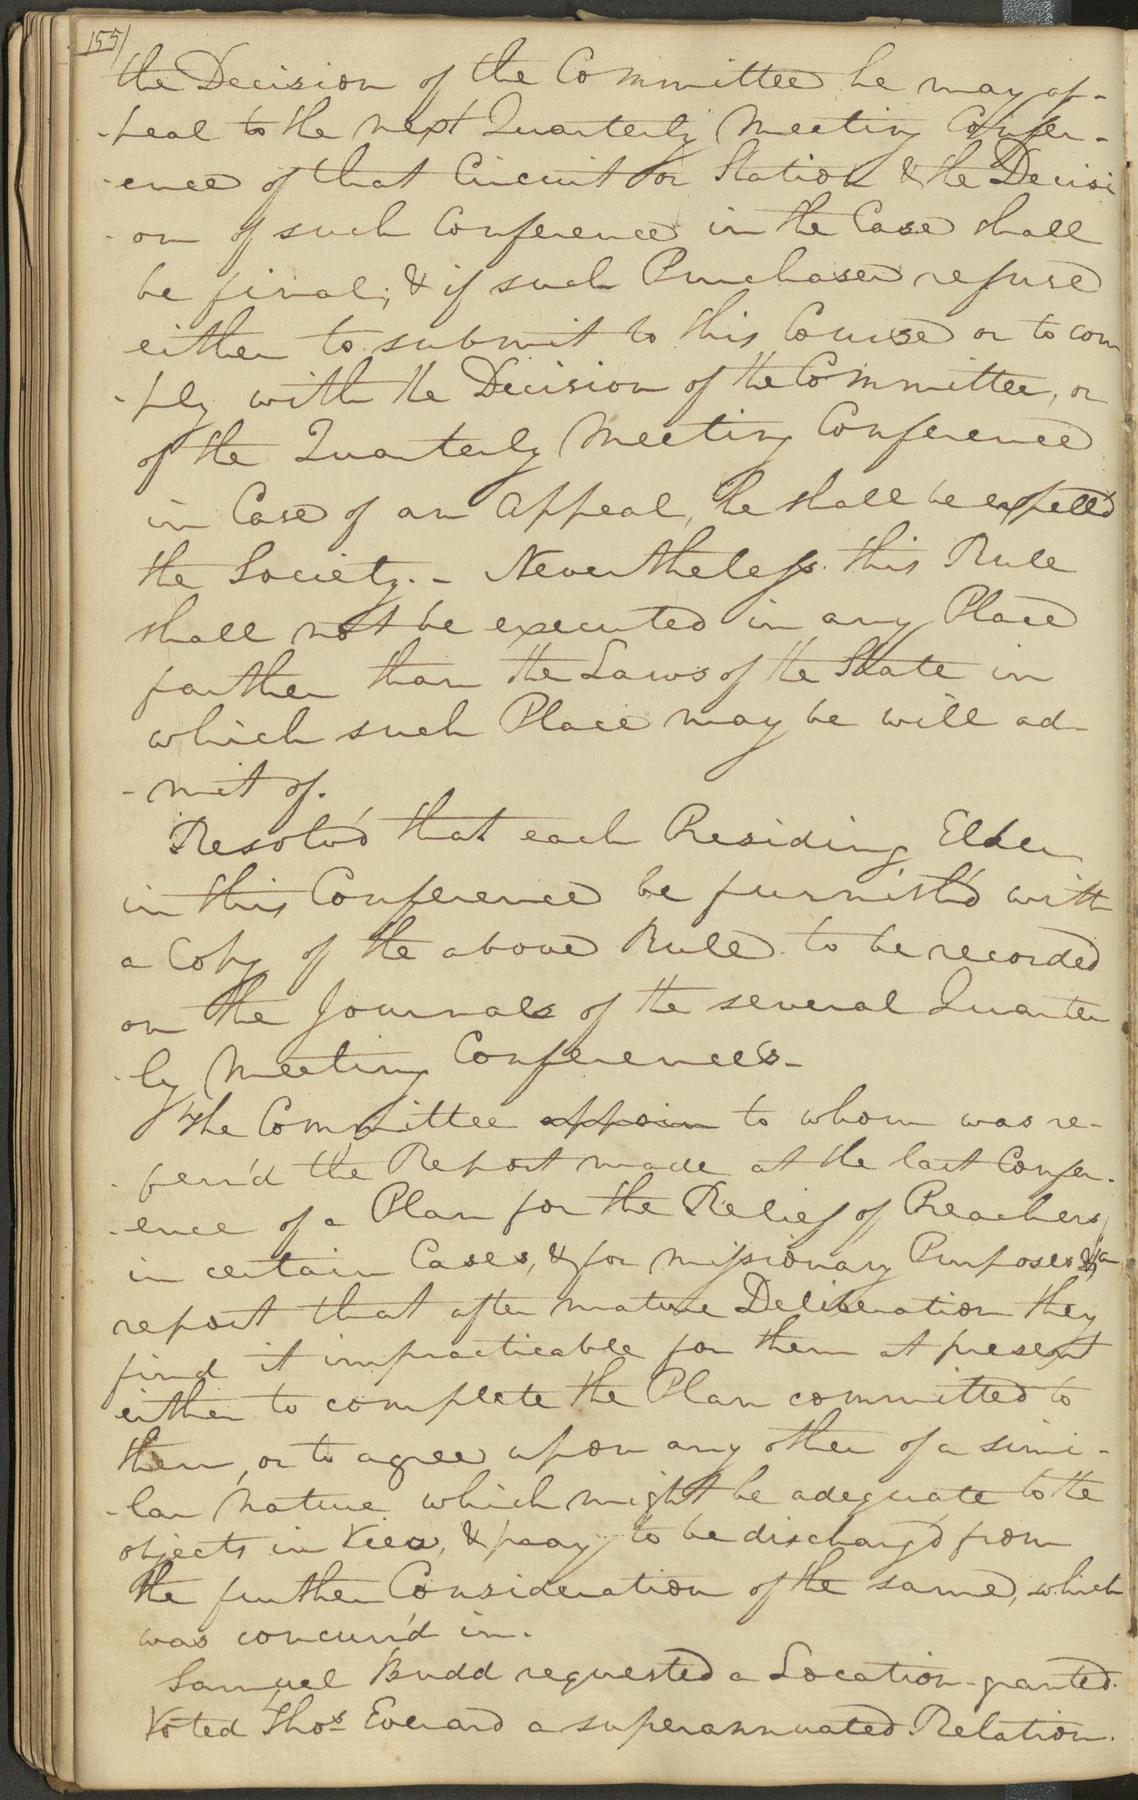 155/
the Decision of the Committee he may ap-
-peal to the next Quarterly Meeting Confer-
-ence of that Circuit or Station & the Decisi
-on of such Conference in the Case shall
be final; & if such Purchaser refuse
either to submit to this Course or to com
-ply with the Decision of the Committee, or
of the Quarterly Meeting Conference
in Case of an Appeal, he shall be expelled
the Society. - Nevertheless this Rule
shall not be executed in any Place
farther than the Laws of the State in
which such Place may be will ad-
-mit of.
Resolv'd that each Presiding Elder
in this Conference be furnish'd with
a Copy of the above Rule to be recorded
on the Journals of the several Quarter
-ly Meeting Conferences-
The Committee appoin to whom was re-
-ferr'd the Report made at the last Confer-
-ence of a Plan for the Relief of Preachers,
in certain Cases, & for missionary Purposes &ca
report that after mature Deliberation they
find it impracticable for them at present
either to complete the Plan committed to
them, or to agree upon any other of a simi-
-lar nature which might be adequate to the
objects in View, & pray to be discharg'd from
the further Consideration of the same, which
was concurr'd in.
Samuel Budd requested a Location-granted.
Voted Thos. Everard a superannuated Relation.